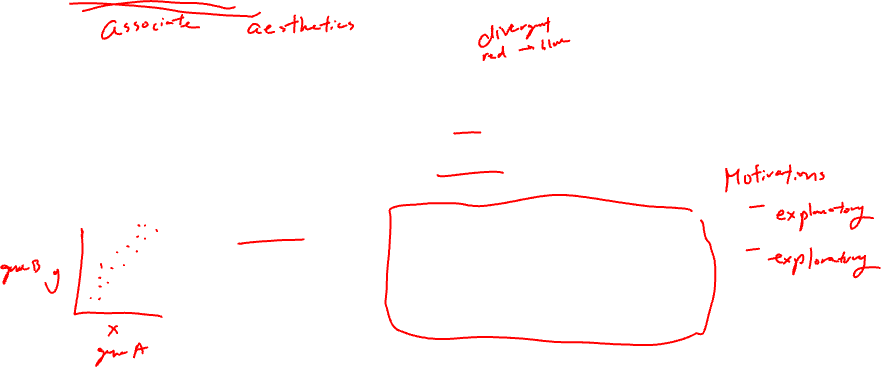 associate aesthetics
divergent
red → blue
Motivations
– explanatory
– exploratory
gene B y
x
gene A